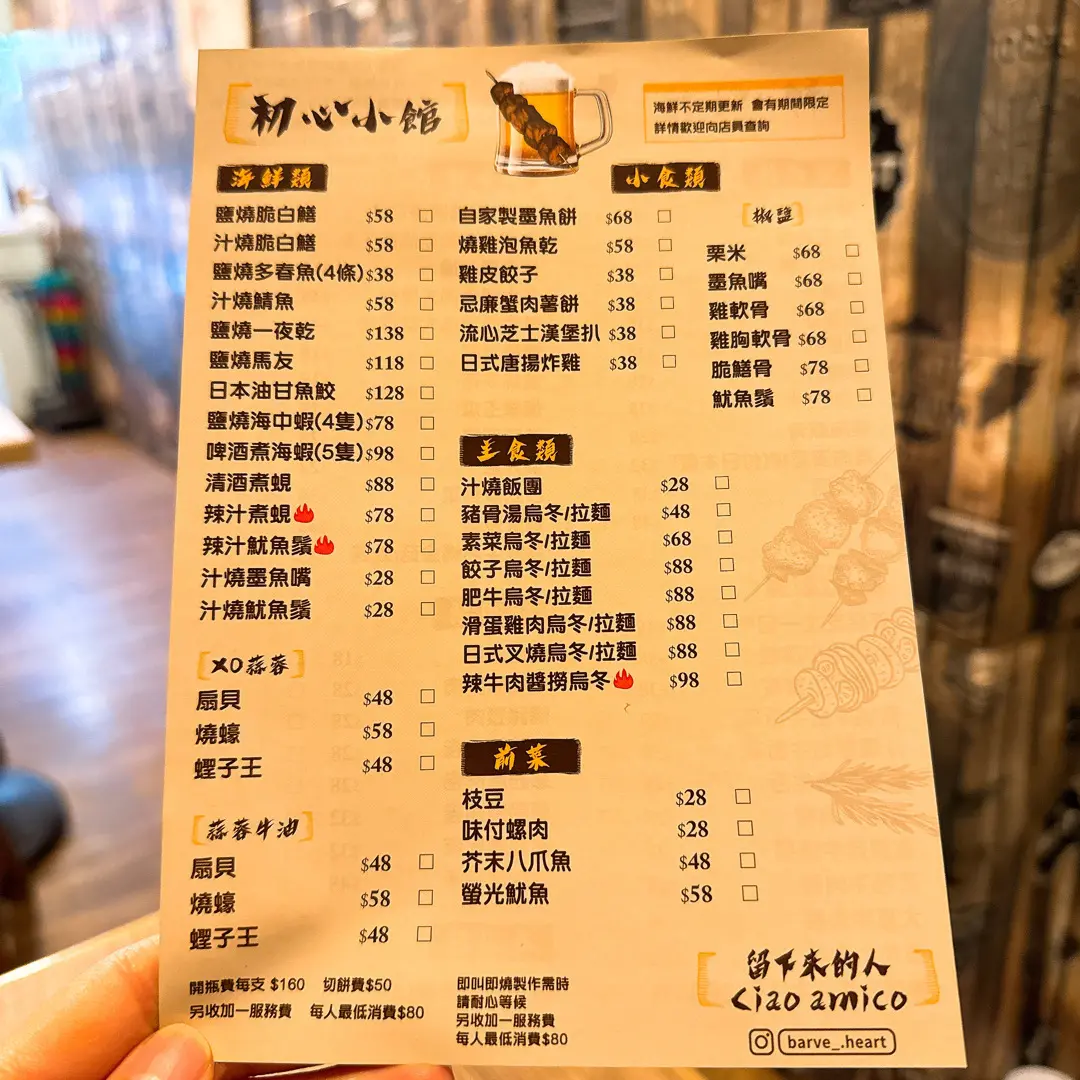 初心小館
海鮮不定期更新 會有期間限定
詳情歡迎向店員查詢
海鮮類
鹽燒脆白鱔 $58 □
汁燒脆白鱔 $58 □
鹽燒多春魚(4條) $38 □
汁燒鯖魚 $58 □
鹽燒一夜乾 $138 □
鹽燒馬友 $118 □
日本油甘魚鮫 $128 □
鹽燒海中蝦(4隻) $78 □
啤酒煮海蝦(5隻) $98 □
清酒煮蜆 $88 □
辣汁煮蜆🔥 $78 □
辣汁魷魚鬚🔥 $78 □
汁燒墨魚嘴 $28 □
汁燒魷魚鬚 $28 □
XO蒜蓉
扇貝 $48 □
燒蠔 $58 □
蟶子王 $48 □
蒜蓉牛油
扇貝 $48 □
燒蠔 $58 □
蟶子王 $48 □
開瓶費每支 $160 切餅費$50
另收加一服務費 每人最低消費$80
小食類
自家製墨魚餅 $68 □
燒雞泡魚乾 $58 □
雞皮餃子 $38 □
忌廉蟹肉薯餅 $38 □
流心芝士漢堡扒 $38 □
日式唐揚炸雞 $38 □
椒鹽
粟米 $68 □
墨魚嘴 $68 □
雞軟骨 $68 □
雞胸軟骨 $68 □
脆鱔骨 $78 □
魷魚鬚 $78 □
主食類
汁燒飯團 $28 □
豬骨湯烏冬/拉麵 $48 □
素菜烏冬/拉麵 $68 □
餃子烏冬/拉麵 $88 □
肥牛烏冬/拉麵 $88 □
滑蛋雞肉烏冬/拉麵 $88 □
日式叉燒烏冬/拉麵 $88 □
辣牛肉醬撈烏冬🔥 $98 □
前菜
枝豆 $28 □
味付螺肉 $28 □
芥末八爪魚 $48 □
螢光魷魚 $58 □
即叫即燒製作需時
請耐心等候
另收加一服務費
每人最低消費$80
留下來的人
ciao amico
barve_.heart